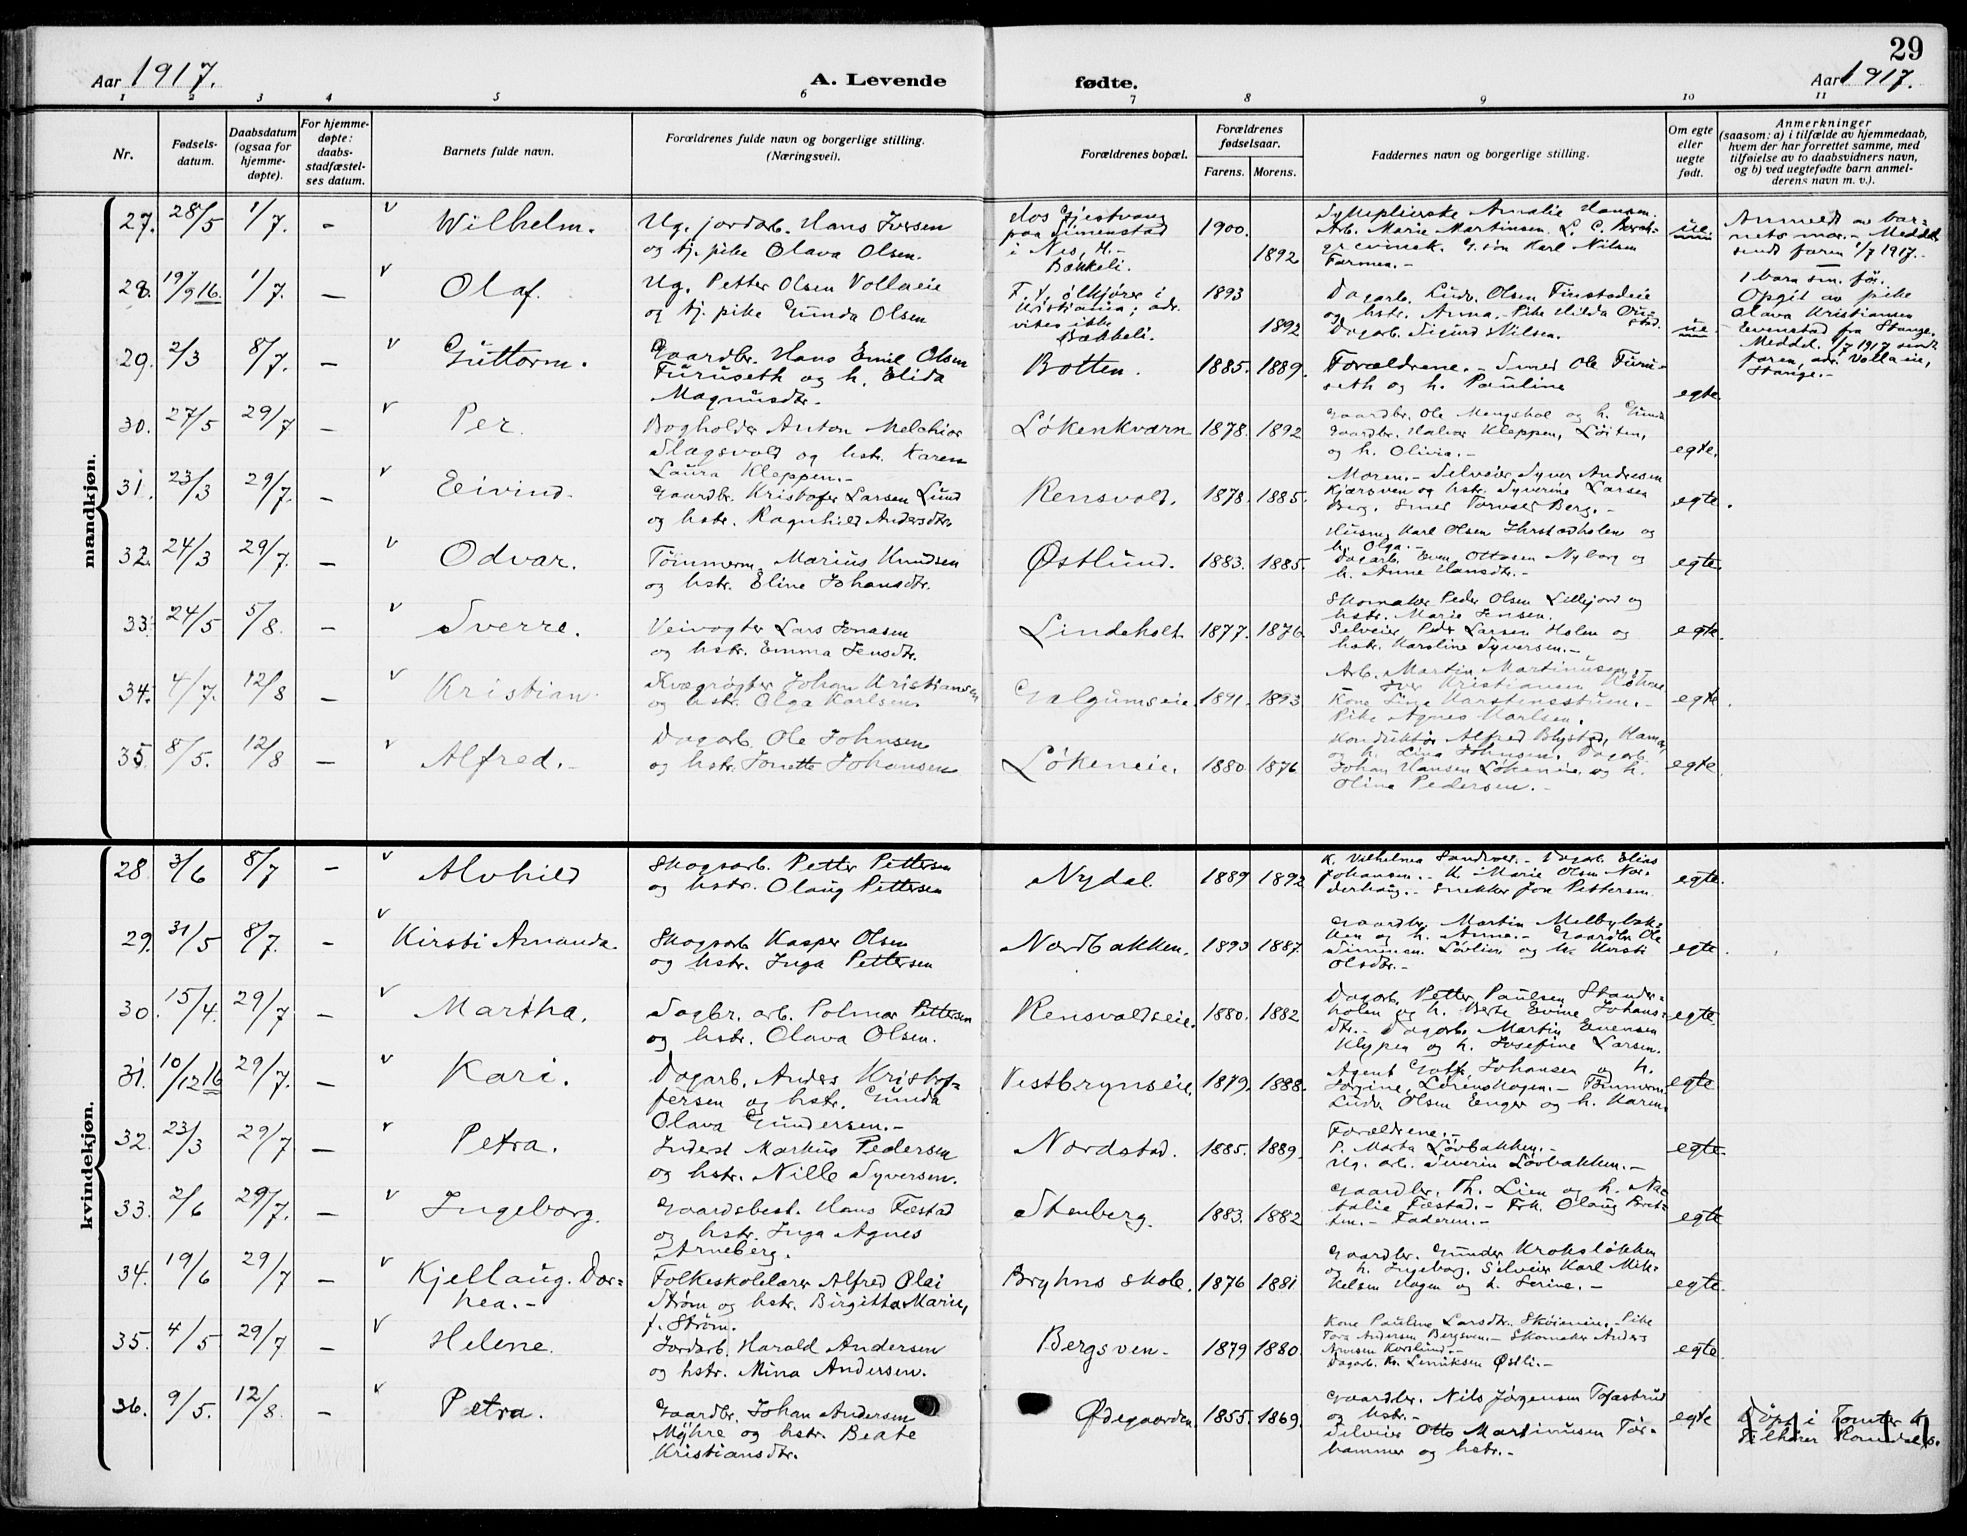 29
Aar 1917.
A. Levende
fødte.
Aar 1917.
1 2 3 4 5 6 7 8 9 10 11
Nr.
Fødsels-
datum.
Daabsdatum
(ogsaa for
hjemme-
døpte).
For hjemme-
døpte:
daabs-
stadfæstel-
ses datum.
Barnets fulde navn.
Forældrenes fulde navn og borgerlige stilling.
(Næringsvei).
Forældrenes bopæl.
Forældrenes
fødselsaar.
Farens. Morens.
Faddernes navn og borgerlige stilling.
Om egte
eller
uegte
født.
Anmerkninger
(saasom: a) i tilfælde av hjemmedaab,
hvem der har forrettet samme, med
tilføielse av to daabsvidners navn,
og b) ved uegtefødte barn anmel-
derens navn m. v.).
mandkjøn.
27. 28/5 1/7. - v Wilhelm.
Ug. jordarb. Hans Iversen
og tj. pike Olava Olsen.
paa Timenstad
i Nes, H.-
Bækkeli.
1900. 1892
Arb. Marie Martinsen.
Karl Nilsen
Farmen.-
ue.
Anmeldt av bar-
nets mor.- Meddel.
sendt faren 1/7 1917.-
28. 19/9 16. 1/7. - v Olaf.
Ug. Petter Olsen Vollaeie
og tj. pike Gunda Olsen
F. ølkjører i
Kristiania; adr.
vites ikke
Bækkeli.
1893 1892
Dagarb. Ludv. Olsen Finstadeie
og hstr. Anna.- Pike Hilda
Dagarb. Sigurd Nilsen.
ue.
1 barn sm. før.
Opgit av pike
Olava Kristiansen
Evenstad fra Stange.
Meddel. 1/7 1917 sendt
faren, adr. Vollaeie,
Stange.-
29. 2/3 8/7. - v Guttorm.
Gaardbr. Hans Emil Olsen
Furuseth og h. Elida
Magnusdtr.
Botten. 1885. 1889.
Forældrene.- Smed Ole Furu-
seth og h. Pauline
egte.
30. 27/5 29/7 - v Per.
Bogholder Anton Melchior
Slagsvold og hstr. Karen
Laura Kleppen.-
Løkenkværn 1878. 1892
Gaardbr. Ole Mengshol og h. Gunda
Gaardbr. Halvor Kleppen, Løiten,
og h. Olivia.-
egte.
31. 23/3 29/7. - v Eivind.
Gaardbr. Kristofer Larsen Lund
og hstr. Ragnhild Andersdtr.
Rensvold. 1878. 1885.
Moren.- Selveier Syver Andersen
Kjærsven og hstr. Syverine Larsen
Berg.-
egte.
32. 24/3 29/7. - v Odvar.
Tømmerm. Marius Knudsen
og hstr. Eline Johansdtr.
Østlund. 1883. 1885.
Husm. Karl Olsen Ihrstadholen og
h. Olga.-
Dagarb. Even Ottosen Nyborg og
h. Anne Hansdtr.-
egte.
33. 24/5 5/8. - v Sverre.
Veivogter Lars Jonasen
og hstr. Emma Jensdtr.
Lindeholt. 1877. 1876.
Skomaker Peder Olsen Lillejord og
hstr. Marie Jensen.
Selveier Peder Larsen Holen og
hstr. Karoline Syversen.-
egte.
34. 4/7. 12/8 - v Kristian.
Kvægrøgter Johan Kristiansen
og hstr. Olga Karlsen.
Galgumseie. 1891. 1893
Arb. Martin Martinusen,-
Iver Kristiansen
Kone Lina Karstensstuen.-
Pike Agnes Karlsen.
egte.
35. 8/5. 12/8 - v Alfred.-
Dagarb. Ole Johnsen
og hstr. Jonette Johansen
Løkeneie. 1880. 1876
Konduktør Alfred Blystad, Hamar,
og h. Lina Johnsen. Dagarb.
Johan Hansen Løkeneie og h.
Oline Pedersen.-
egte.
kvindekjøn.
28. 3/6 8/7 - v Alvhild
Skogsarb. Petter Pettersen
og hstr. Olaug Pettersen
Nydal. 1889 1892
K. Vilhelmea Dagarb. Elias
Johansen.- K. Marie Olsen Nor-
derhaug.- Snekker Jon Pettersen.
egte.
29. 31/5 8/7. - v Kirsti Amanda.
Skogsarb Kasper Olsen
og hstr. Inga Pettersen
Nordbakken. 1893 1887.
Gaardbr. Martin Melbybak-
ken og h. Anna.- Gaardbr. Ole
Simensen Løvlien og h. Kirsti
Olsdtr.-
egte.
30. 15/4. 29/7 - v Martha.
Sagbr. arb. Polmar Pettersen
og hstr. Olava Olsen.
Rensvoldseie. 1880. 1882
Dagarb. Petter Paulsen Stander-
holen og h. Berte Evine Johans-
dtr.- Dagarb. Martin Evensen
Klypen og h. Josefine Larsen.
egte.
31. 10/12 16 29/7. - v Kari.
Dagarb. Anders Kristof-
fersen og hstr. Gunda
Olava Gundersen.-
Vestbrynseie. 1879. 1888.
Agent Johansen og h.
Jørgine, Lørenshagen.- Tømmerm.
Ludv. Olsen Enger og h. Karen.
egte.
32. 23/3 29/7 - v Petra.
Inderst Markus Pedersen
og hstr. Nille Syversen.
Nordstad. 1885. 1889.
Forældrene.-
P. Marta Løvbakken.-
Ug. arb. Severin Løvbakken.-
egte
33. 2/6 29/7. - v Ingeborg.
Gaardsbest. Hans Fæstad
og hstr. Inga Agnes
Arneberg.
Stenberg. 1883. 1882
Gaardbr. Th. Lien og h. Na-
talie Fæstad.- Frk. Olaug
Faderen.-
egte
34. 19/6 29/7 - v Kjellaug. Dor-
hea.-
Folkeskolelærer Alfred Olai
Strøm og hstr. Birgitta Marie,
f. Strøm.
Bryhns skole. 1876 1881.
Gaardbr. Gunder Kroksløkken
og h. Ingeborg. Selveier Karl Mik-
kelsen Hagen og h. Serine.-
egte.
35. 4/5 29/7 - v Helene.
Jordarb. Harald Andersen
og hstr. Mina Andersen.
Bergsven.- 1879 1880.
Kone Pauline Larsdtr. Skoienein.- Pike
Tora Andersen Bergsven.- Skomaker Anders
Dagarb. Kr. Lenriksen Østli.-
egte.
36. 9/5. 12/8. - v Petra.
Gaardbr. Johan Andersen
Myhre og hstr. Beate
Kristiansdtr.
Ødegaarden 1855. 1869.
Gaardbr. Nils Jørgensen Tofastrud
og hstr.-
Selveier Otto Martinusen Tor-
hammer og hstr.-
egte
Døpt i Tomter k.
Tilhører Romedal s.